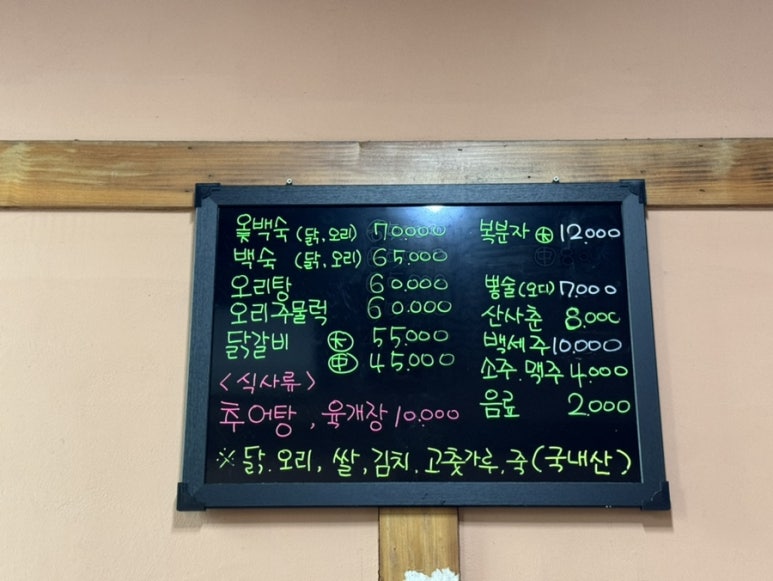 옻백숙 (닭, 오리) 70.000
백숙 (닭, 오리) 65.000
오리탕 60.000
오리주물럭 60.000
닭갈비 大 55.000
中 45.000
<식사류>
추어탕, 육개장 10.000
복분자 大 12.000
뽕술(오디) 7.000
산사춘 8.000
백세주 10.000
소주.맥주 4.000
음료 2.000
※ 닭. 오리, 쌀, 김치. 고춧가루, 죽(국내산)